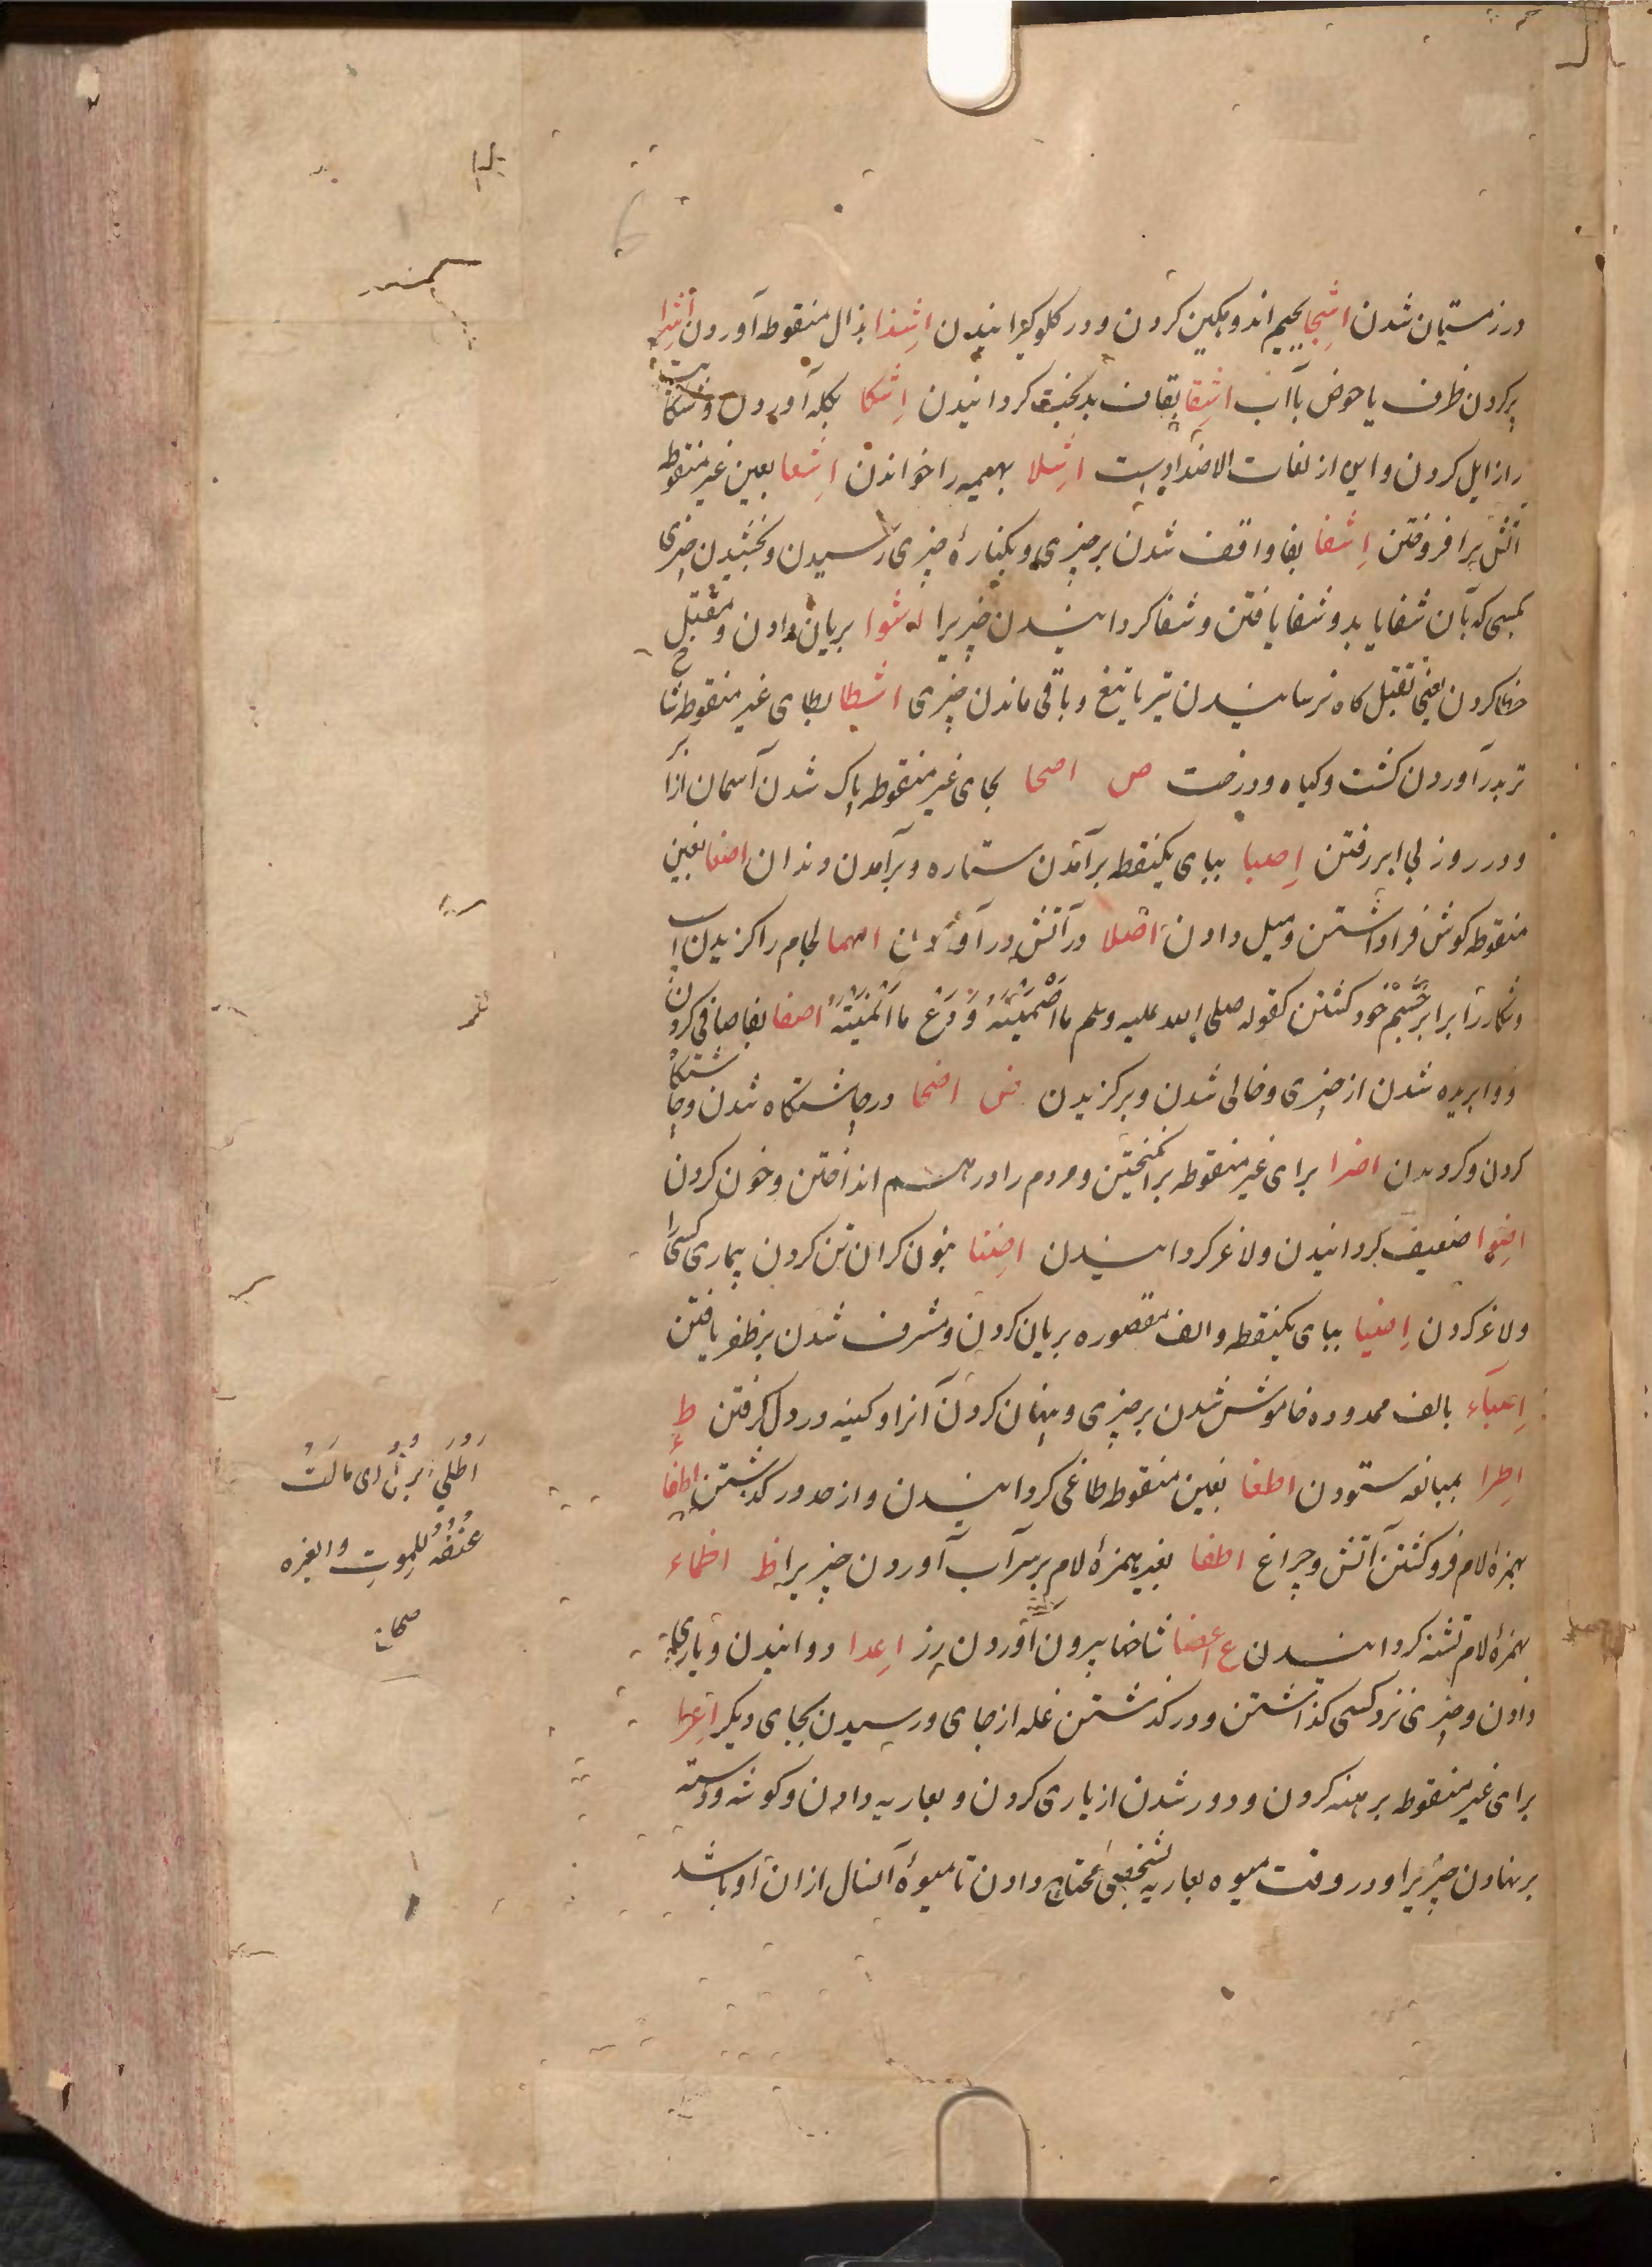 در زمستان شدن اشجا بجیم اندوهگین کردن و در گلو گیرانیدن اشذا بذال منقوطه آوردن اشرا
پر کردن ظرف یا حوض باآب اشقا بقاف بدبخت گردانیدن اشکا بگله آوردن و شکایت
را زایل کردن و این از لغات الاضداد است اشلا بهیمه را خواندن اشعا بعین غیر منقوطه
آتش برافروختن اشفا بفا واقف شدن بر چیزی و بکنارهٔ چیزی رسیدن و بخشیدن چیزی
بکسی که بآن شفا یابد و شفا یافتن و شفا کردانیدن چیزیرا اشوا بریان دادن و مقتل
خطا کردن یعنی بقتل کاه نرسانیدن تیر یا تیغ و باقی ماندن چیزی اشطا بطای غیر منقوطه شا
تر بدر آوردن کشت و کیاه و درخت ص اصحا بحای غیر منقوطه پاک شدن آسمان از ابر
و در روز بی ابر رفتن اصبا ببای یکنقطه برآمدن ستاره و برآمدن دندان اصغا بغین
منقوطه کوش فرا داشتن و میل دادن اصلا در آتش در آوردن اصما لجام را کزیدن اسپ
و شکار را برابر چشم خود کشتن کقوله صلی الله علیه وسلم ما اَصْمَیْتَهُ وَ دَعْ ما اَنْمَیْتَهُ اصفا بفا صافی کردن
و وابریده شدن از چیزی و خالی شدن و برکزیدن ض اضحا در چاشتکاه شدن و چاشتکاه
کردن و کردیدن اضرا برای غیر منقوطه برانکیختن و مردم را در هم انداختن و خون کردن
اضوا ضعیف کردانیدن و لاغر کردانیدن اضنا بنون کران تن کردن بیماری کسی را
و لاغر کردن اضبا ببای یکنقطه و الف مقصوره بریان کردن و مشرف شدن بر ظفر یافتن
اضباء بالف ممدوده خاموش شدن بر چیزی و پنهان کردن آنرا و کینه در دل کرفتن ط
اطرا بمبالغه ستودن اطغا بغین منقوطه طاغی کردانیدن و از حد در کذشتن اطفا
بهمزهٔ لام فرو کشتن آتش و چراغ اطفا بغیر همزهٔ لام بر سر آب آوردن چیزیرا ظ اظماء
بهمزهٔ لام تشنه کردانیدن ع اعضا شاخها بیرون آوردن رز اعدا دوانیدن و یاری
دادن و چیزی نزد کسی کذاشتن و در کذشتن غله از جای و رسیدن بجای دیکر اعرا
برای غیر منقوطه برهنه کردن و دور شدن از یاری کردن و بعاریه دادن و کوشه و دسته
بر نهادن چیزیرا و در وقت میوه بعاریه بشخصی محتاج دادن تا میوهٔ آنسال از ان او باشد
اطلی
ای مالت
عنقه للموت والغیره
صحاح